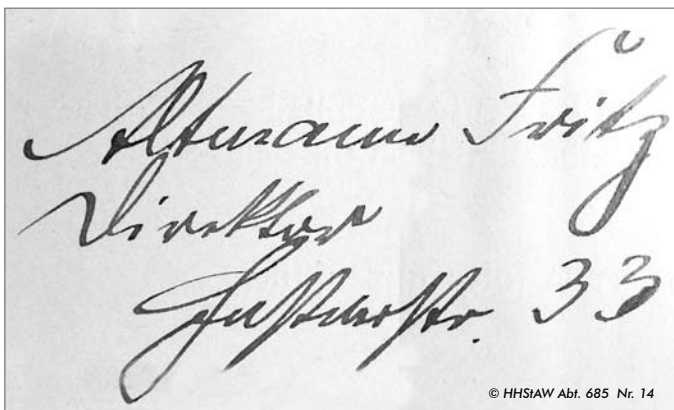 Altmann Fritz
Direktor
33
© HHStAW Abt. 685 Nr. 14